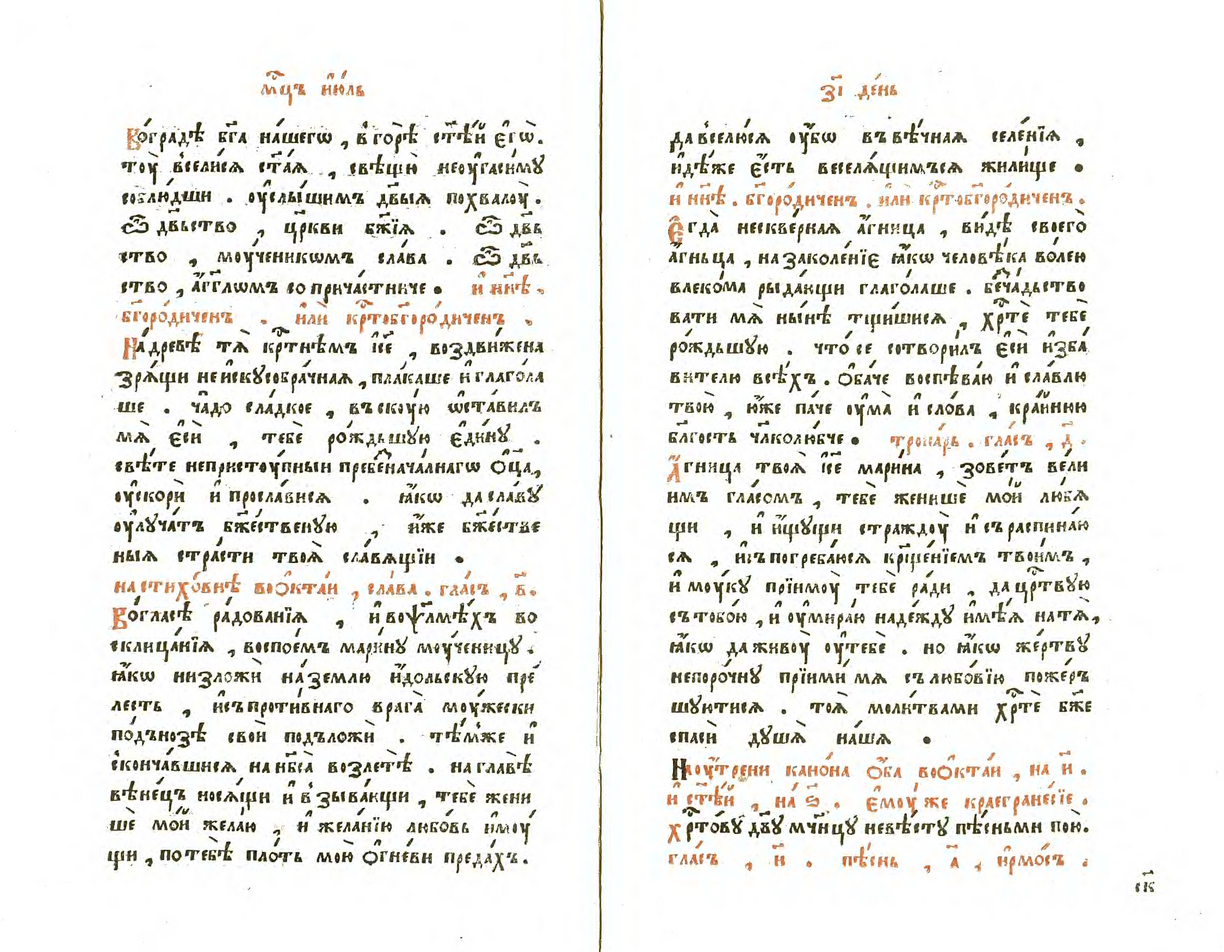 мц҃ъ ию́ль
Во́градѣ бг҃а на́шегѡ , в горѣ̀ ст҃ѣ́й єгѡ̀.
тоу̀ всели́сѧ ст҃а́ѧ , свѣщю̀ неоугаси́мꙋ
соблю́дши . оуслы́шимъ дв҃ыѧ похвалоу̀ .
ѽ дв҃ьство , цр҃кви бж҃їѧ . ѽ дв҃ь
ство , моу́ченикѡмъ сла́ва . ѽ дв҃ь
ство , а҆́гг҃лѡмъ соприча́стниче • и҆ нн҃ѣ .
бг҃оро́диченъ . и҆лѝ кр҃тобг҃оро́диченъ .
На́древѣ тѧ̀ кр҃тнѣмъ і҆с҃е , воздви́жена
зрѧ́щи неискусобра́чнаѧ , пла́каше и҆ глагола
ше . ча́до сла́дкое , въскꙋ́ю ѡ҆ста́вилъ
мѧ̀ є҆сѝ , тебе ро́ждьшую є҆ди́нꙋ .
свѣ́те непристоу́пныи пребезнача́лнагѡ ѻ҆ц҃а̀,
оускорѝ и҆ просла́висѧ . ꙗ҆́кѡ да сла́вꙋ
оулꙋча́тъ бж҃е́ственую , и҆̀же бж҃е́стве
ныѧ стра́сти твоѧ̀ сла́вѧщїи •
на стихо́внѣ во ѻ҆кта́и , сла́ва . гла́съ , в҃.
Во́гласѣ ра́дованїѧ , и҆ во ѱалмѣ́хъ во
склица́нїѧ , воспое́мъ мари́нꙋ моу́ченицꙋ .
ꙗ҆́кѡ низложѝ на́землю и҆́дольскую пре́
лесть , и҆съпроти́внаго врага̀ моу́жески
подъно́зѣ своѝ подъложѝ . тѣ́мже и҆
скончавшисѧ на нб҃са̀ возлетѣ̀ . на главѣ̀
вѣне́цъ носѧ́щи и҆ взыва́ѧщи , тебе жени
шѐ мо́й жела́ю , и҆ жела́нїю любо́вь и҆моу́
щи , по тебѣ̀ пло́ть мою̀ ѻ҆гне́ви преда́хъ .
з҃і де́нь
да вселю́сѧ оу҆́бѡ въ вѣ́чнаѧ селе́нїѧ ,
и҆дѣ́же є҆́сть веселѧ́щимъсѧ жили́ще •
и҆ нн҃ѣ . бг҃оро́диченъ . и҆лѝ кр҃тобг҃оро́диченъ .
Є҆гда̀ нескве́рнаѧ а҆́гница , ви́дѣ своего̀
а҆́гньца , на заколе́нїє ꙗ҆́кѡ человѣ́ка во́лею
влеко́ма рыда́ющи глаго́лаше . безча́дьство
вати мѧ̀ ны́нѣ тщи́шисѧ , хр҃тѐ тебѐ
ро́ждьшую . что̀ се сотвори́лъ є҆сѝ и҆зба́
вителю всѣ́хъ . ѻ҆ба́че воспѣва́ю и҆ сла́влю
твою̀ , ю҆́же па́че оума̀ и҆ сло́ва , кра́йнюю
бл҃гость чл҃колю́бче • тропа́рь . гла́съ , д҃ .
А҆́гница твоѧ̀ і҆с҃е мари́на , зове́тъ ве́ли
имъ гла́сомъ , тебѐ женишѐ мо́й люблѧ̀
щи , и҆ и҆щꙋщи стра́ждоу и҆ съраспина́ю
сѧ , и҆съпогреба́юсѧ кр҃ще́нїемъ твои́мъ ,
и҆ моу́ку прїимоу̀ тебѐ ра́ди , да цр҃твую
съ тобо́ю , и҆ оумира́ю наде́ждꙋ и҆мѣ́ѧ на тѧ̀,
ꙗ҆́кѡ да живоу̀ оутебѐ . но ꙗ҆́кѡ же́ртвꙋ
непоро́чнꙋ прїимѝ мѧ съ любо́вїю поже́ръ
шꙋютисѧ . тоѧ̀ моли́твами хр҃тѐ бж҃е
спасѝ дꙋ́шѧ на́шѧ •
На оу́трени кано́на ѻ҆́ба во ѻ҆кта́и , на и҃ .
и҆ ст҃ѣ́й , на ѕ҃ . Є҆мꙋ́же краегране́сїе .
хр҃то́вꙋ дв҃ꙋ мч҃нцꙋ невѣ́стꙋ пѣ́сньми пою̀.
гла́съ , и҃ . пѣ́снь , а҃ , и҆рмо́съ .
ск҃